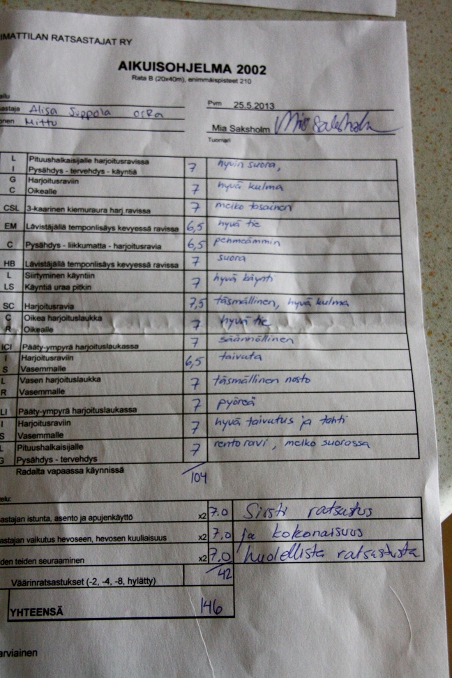 IMATTILAN RATSASTAJAT RY
AIKUISOHJELMA 2002
Rata B (20x40m), enimmäispisteet 210
astaja Alisa Suppola OSRa
onen Mittu
Pvm 25.5.2013
Mia Saksholm Mia Saksholm
Tuomari
L Pituushalkaisijalle harjoitusravissa
I Pysähdys - tervehdys - käyntiä 7 hyvin suora,
G Harjoitusraviin
C Oikealle 7 hyvä kulma
CSL 3-kaarinen kiemuraura harj ravissa 7 melko tasainen
EM Lävistäjällä temponlisäys kevyessä ravissa 6,5 hyvä tie
C Pysähdys - liikkumatta - harjoitusravia 6,5 pehmeämmin
HB Lävistäjällä temponlisäys kevyessä ravissa 7 suora
L Siirtyminen käyntiin
LS Käyntiä uraa pitkin 7 hyvä käynti
SC Harjoitusravia 7,5 täsmällinen, hyvä kulma
C Oikea harjoituslaukka
R Oikealle 7 hyvä tie
ICI Pääty-ympyrä harjoituslaukassa 7 säännöllinen
I Harjoitusraviin
S Vasemmalle 6,5 taivuta
L Vasen harjoituslaukka
R Vasemmalle 7 täsmällinen nosto
LI Pääty-ympyrä harjoituslaukassa 7 pyöreä
I Harjoitusraviin
S Vasemmalle 7 hyvä taivutus ja tahti
L Pituushalkaisijalle
G Pysähdys - tervehdys 7 rento ravi, melko suorassa
Radalta vapaassa käynnissä
104
elu:
astajan istunta, asento ja apujenkäyttö x2 7,0 Siisti ratsastus
astajan vaikutus hevoseen, hevosen kuuliaisuus x2 7,0 ja kokonaisuus
den teiden seuraaminen x2 7,0 huolellista ratsastusta
42
Väärinratsastukset (-2, -4, -8, hylätty)
YHTEENSÄ 146
arviainen